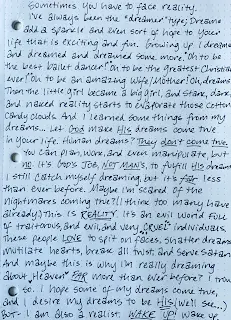 Sometimes You have to face reality.
I've always been the "dreamer" type; Dreams
add a sparkle and even sort of hope to your
life that is exciting and fun. Growing up I dreamed
and dreamed and dreamed some more. "Oh to be
the best ballet dancer." Oh to be the greatest Christian
ever! Oh to be an amazing Wife/Mother! Oh, dreams
Then the little girl became a big girl, and stark, dark,
and naked reality starts to evaporate those cotton
candy clouds. And I learned some things from my
dreams... Let God make HIS dreams come true
in your life. Human dreams? They don't come true.
You can plan, work, and even manipulate, but
no. It's God's JOB, NOT MAN'S, to fulfill HIS dreams
I still catch myself dreaming, but it's far less
than ever before. Maybe I'm scared of the
nightmares coming true? (I think too many have
already) This is REALITY. It's an evil world full
of traitorous, and evil, and very "CRUEL" individuals.
These people LOVE to spit on faces, shatter dreams
mutilate hearts, break all trust, and serve Satan.
And maybe this is why I'm really dreaming
about "Heaven" FAR more than ever before? I trow
so. I hope some of my dreams come true,
and I desire my dreams to be HIS (we'll see..)
But- I am also a realist. WAKE UP! Wake up,